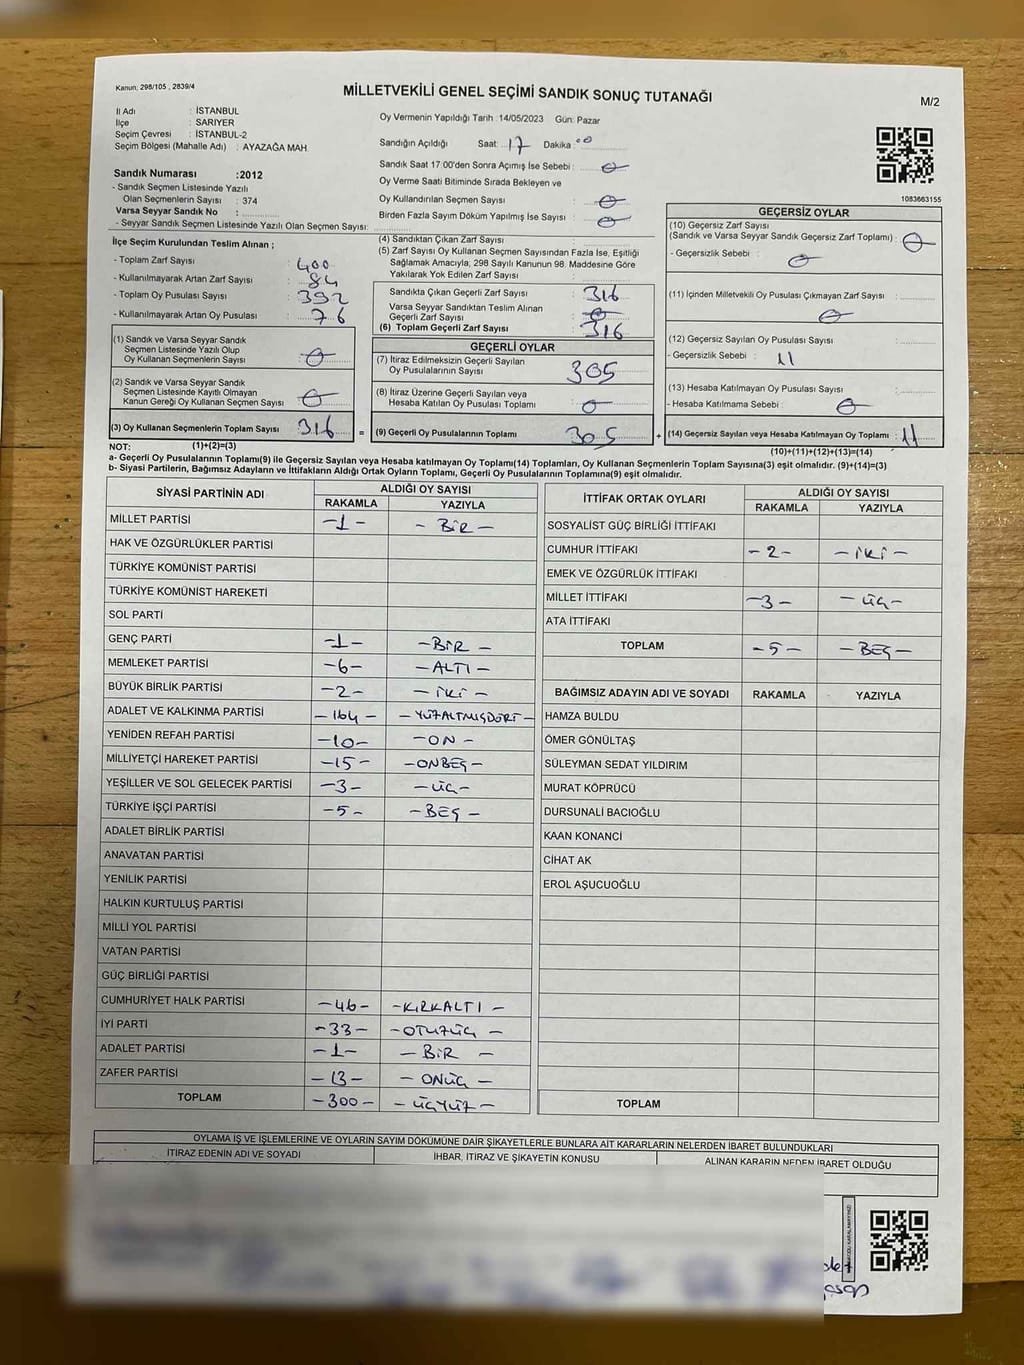 Kanun; 298/105 , 2839/4
MİLLETVEKİLİ GENEL SEÇİMİ SANDIK SONUÇ TUTANAĞI
M/2
İl Adı : İSTANBUL
İlçe : SARIYER
Seçim Çevresi : İSTANBUL-2
Seçim Bölgesi (Mahalle Adı) : AYAZAĞA MAH.
Oy Vermenin Yapıldığı Tarih :14/05/2023 Gün: Pazar
Sandığın Açıldığı Saat: 17 Dakika: 00
Sandık Saat 17:00'den Sonra Açımış İse Sebebi : 0
Oy Verme Saati Bitiminde Sırada Bekleyen ve
Oy Kullandırılan Seçmen Sayısı : 0
Birden Fazla Sayım Döküm Yapılmış İse Sayısı : 0
1083663155
Sandık Numarası :2012
- Sandık Seçmen Listesinde Yazılı
Olan Seçmenlerin Sayısı : 374
Varsa Seyyar Sandık No :
- Seyyar Sandık Seçmen Listesinde Yazılı Olan Seçmen Sayısı:
İlçe Seçim Kurulundan Teslim Alınan ;
- Toplam Zarf Sayısı : 400
- Kullanılmayarak Artan Zarf Sayısı : 84
- Toplam Oy Pusulası Sayısı : 392
- Kullanılmayarak Artan Oy Pusulası : 76
(1) Sandık ve Varsa Seyyar Sandık
Seçmen Listesinde Yazılı Olup
Oy Kullanan Seçmenlerin Sayısı : 0
(2) Sandık ve Varsa Seyyar Sandık
Seçmen Listesinde Kayıtlı Olmayan
Kanun Gereği Oy Kullanan Seçmen Sayısı : 0
(3) Oy Kullanan Seçmenlerin Toplam Sayısı : 316 =
(4) Sandıktan Çıkan Zarf Sayısı :
(5) Zarf Sayısı Oy Kullanan Seçmen Sayısından Fazla İse, Eşitliği
Sağlamak Amacıyla, 298 Sayılı Kanunun 98. Maddesine Göre
Yakılarak Yok Edilen Zarf Sayısı :
Sandıkta Çıkan Geçerli Zarf Sayısı : 316
Varsa Seyyar Sandıktan Teslim Alınan
Geçerli Zarf Sayısı : 0
(6) Toplam Geçerli Zarf Sayısı : 316
GEÇERLİ OYLAR
(7) İtiraz Edilmeksizin Geçerli Sayılan
Oy Pusulalarının Sayısı : 305
(8) İtiraz Üzerine Geçerli Sayılan veya
Hesaba Katılan Oy Pusulası Toplamı : 0
(9) Geçerli Oy Pusulalarının Toplamı : 305 +
GEÇERSİZ OYLAR
(10) Geçersiz Zarf Sayısı
(Sandık ve Varsa Seyyar Sandık Geçersiz Zarf Toplamı) : 0
- Geçersizlik Sebebi : 0
(11) İçinden Milletvekili Oy Pusulası Çıkmayan Zarf Sayısı :
0
(12) Geçersiz Sayılan Oy Pusulası Sayısı :
- Geçersizlik Sebebi : 11
(13) Hesaba Katılmayan Oy Pusulası Sayısı :
- Hesaba Katılmama Sebebi : 0
(14) Geçersiz Sayılan veya Hesaba Katılmayan Oy Toplamı : 11
NOT: (1)+(2)=(3)
(10)+(11)+(12)+(13)=(14)
a- Geçerli Oy Pusulalarının Toplamı(9) ile Geçersiz Sayılan veya Hesaba katılmayan Oy Toplamı(14) Toplamları, Oy Kullanan Seçmenlerin Toplam Sayısına(3) eşit olmalıdır. (9)+(14)=(3)
b- Siyasi Partilerin, Bağımsız Adayların ve İttifakların Aldığı Ortak Oyların Toplamı, Geçerli Oy Pusulalarının Toplamına(9) eşit olmalıdır.
SİYASİ PARTİNİN ADI ALDIĞI OY SAYISI
RAKAMLA YAZIYLA
MİLLET PARTİSİ -1- -BİR-
HAK VE ÖZGÜRLÜKLER PARTİSİ
TÜRKİYE KOMÜNİST PARTİSİ
TÜRKİYE KOMÜNİST HAREKETİ
SOL PARTİ
GENÇ PARTİ -1- -BİR-
MEMLEKET PARTİSİ -6- -ALTI-
BÜYÜK BİRLİK PARTİSİ -2- -İKİ-
ADALET VE KALKINMA PARTİSİ -164- -YÜZALTMIŞDÖRT-
YENİDEN REFAH PARTİSİ -10- -ON-
MİLLİYETÇİ HAREKET PARTİSİ -15- -ONBEŞ-
YEŞİLLER VE SOL GELECEK PARTİSİ -3- -ÜÇ-
TÜRKİYE İŞÇİ PARTİSİ -5- -BEŞ-
ADALET BİRLİK PARTİSİ
ANAVATAN PARTİSİ
YENİLİK PARTİSİ
HALKIN KURTULUŞ PARTİSİ
MİLLİ YOL PARTİSİ
VATAN PARTİSİ
GÜÇ BİRLİĞİ PARTİSİ
CUMHURİYET HALK PARTİSİ -46- -KIRKALTI-
İYİ PARTİ -33- -OTUZÜÇ-
ADALET PARTİSİ -1- -BİR-
ZAFER PARTİSİ -13- -ONÜÇ-
TOPLAM -300- -ÜÇYÜZ-
İTTİFAK ORTAK OYLARI ALDIĞI OY SAYISI
RAKAMLA YAZIYLA
SOSYALİST GÜÇ BİRLİĞİ İTTİFAKI
CUMHUR İTTİFAKI -2- -İKİ-
EMEK VE ÖZGÜRLÜK İTTİFAKI
MİLLET İTTİFAKI -3- -ÜÇ-
ATA İTTİFAKI
TOPLAM -5- -BEŞ-
BAĞIMSIZ ADAYIN ADI VE SOYADI RAKAMLA YAZIYLA
HAMZA BULDU
ÖMER GÖNÜLTAŞ
SÜLEYMAN SEDAT YILDIRIM
MURAT KÖPRÜCÜ
DURSUNALİ BACIOĞLU
KAAN KONANCİ
CİHAT AK
EROL AŞUCUOĞLU
TOPLAM
OYLAMA İŞ VE İŞLEMLERİNE VE OYLARIN SAYIM DÖKÜMÜNE DAİR ŞİKAYETLERLE BUNLARA AİT KARARLARIN NELERDEN İBARET BULUNDUKLARI
İTİRAZ EDENİN ADI VE SOYADI İHBAR, İTİRAZ VE ŞİKAYETİN KONUSU ALINAN KARARIN NEDEN İBARET OLDUĞU